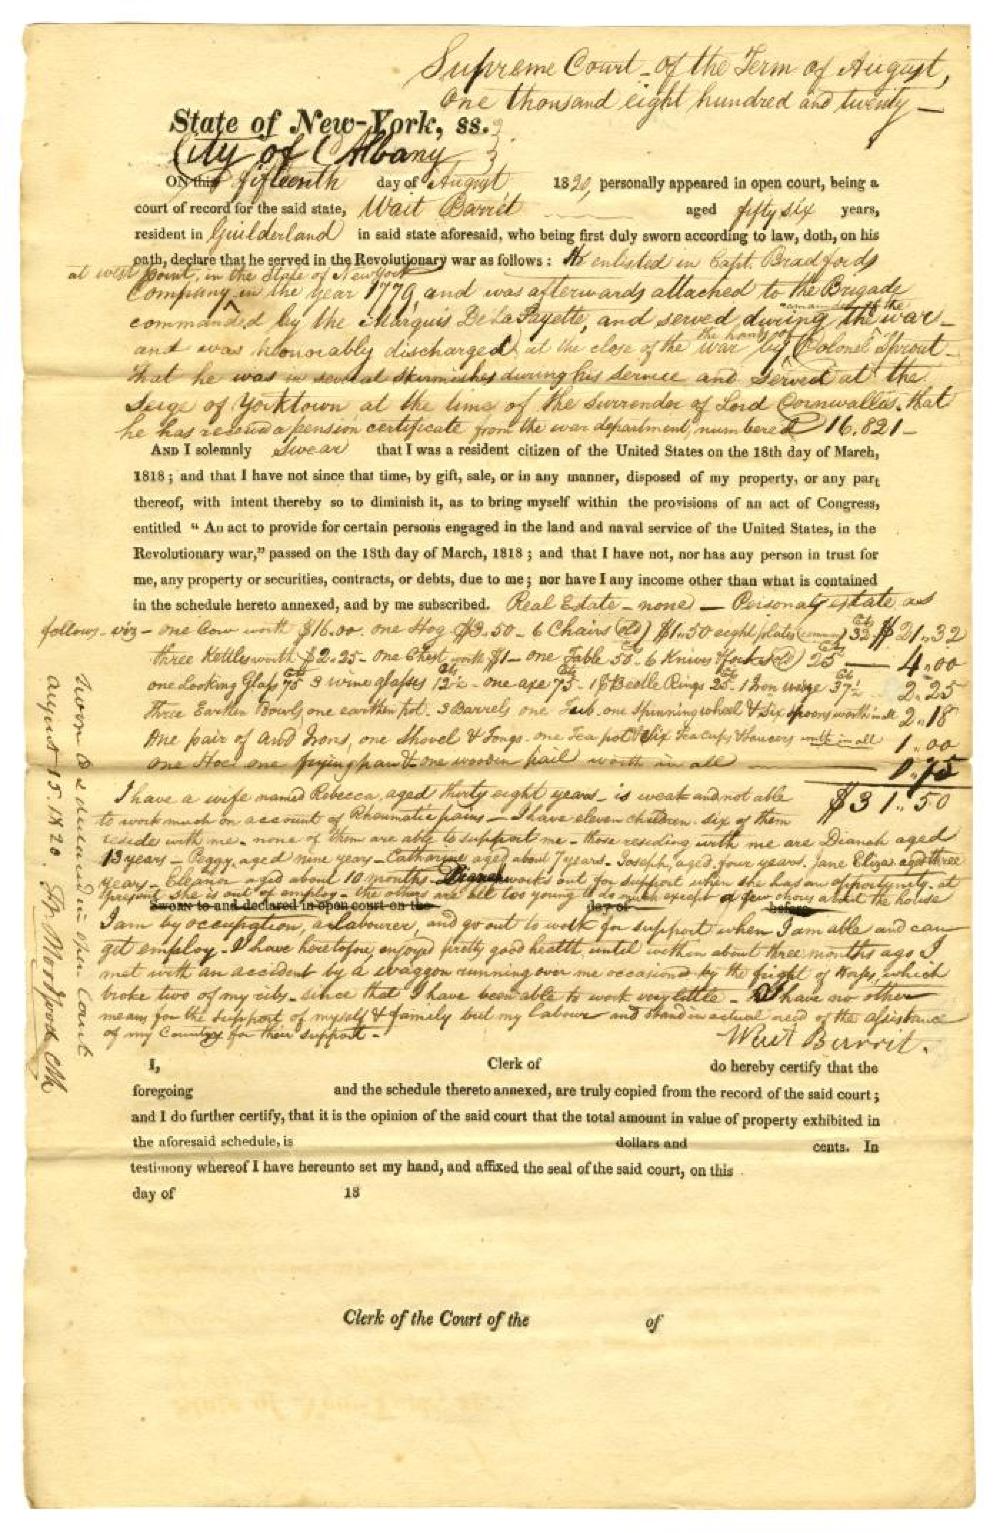 Supreme Court - of the Term of August,
One thousand eight hundred and twenty -
State of New-York, ss.
City of Albany
ON this fifteenth day of August 1820, personally appeared in open court, being a
court of record for the said state, Wait Barrit aged fifty six years,
resident in Guilderland in said state aforesaid, who being first duly sworn according to law, doth, on his
oath, declare that he served in the Revolutionary war as follows: He enlisted in Capt. Bradfords
at west point, in the State of New York
Company in the year 1779, and was afterwards attached to the Brigade
commanded by the Marquis De La Fayette, and served during the remainder of the war -
and was honourably discharged at the close of the war by the hands of Colonel Sprout -
that he was in several skirmishes during his service and served at the
Seige of Yorktown at the time of the surrender of Lord Cornwallis. that
he has received a pension certificate from the war department, numbered 16,821 -
AND I solemnly Swear that I was a resident citizen of the United States on the 18th day of March,
1818; and that I have not since that time, by gift, sale, or in any manner, disposed of my property, or any part
thereof, with intent thereby so to diminish it, as to bring myself within the provisions of an act of Congress,
entitled "An act to provide for certain persons engaged in the land and naval service of the United States, in the
Revolutionary war," passed on the 18th day of March, 1818; and that I have not, nor has any person in trust for
me, any property or securities, contracts, or debts, due to me; nor have I any income other than what is contained
in the schedule hereto annexed, and by me subscribed. Real Estate - none - Personal estate as
follows - viz - one Cow worth $16.00. one Hog $3.50 - 6 Chairs (old) $1.50 eight plates (common) 32 Cts $21.32
three Kettles worth $2.25 - one Chest worth $1 - one Table 50 Cts - 6 Knives & forks (old) 25 Cts - 4.00
one Looking Glass 75 Cts 3 wine glasses 12½ - one axe 75 Cts - 1 Beetle Rings 25 Cts - 1 Iron wedge 37½ Cts 2.25
three Earthen Bowls, one earthen pot. 3 Barrels one Tub. one spinning wheel & six spoons worth in all 2.18
One pair of And Irons, one Shovel & Tongs. one Tea pot & Six Tea cups & saucers worth in all 1.00
one Hoe one frying pan & one wooden pail worth in all - 0.75
$31.50
I have a wife named Rebecca, aged thirty eight years - is weak and not able
to work much on account of Rheumatic pains - I have eleven children. six of them
reside with me - none of them are able to support me - those residing with me are Dianah aged
13 years - Peggy, aged nine years - Catharine aged about 7 years - Joseph, aged four years. Jane Eliza aged three
years - Eleanor aged about 10 months - Dianah works out for support when she has an opportunity - at
present She is out of employ - the others are all too young to do much except a few chores about the house
Sworn to and declared in open court on the day of before
I am by occupation, a labourer, and go out to work for support when I am able and can
get employ - I have heretofore, enjoyed pretty good health until within about three months ago I
met with an accident by a waggon running over me occasioned by the fright of Horses, which
broke two of my ribs - since that I have been able to work very little - I have no other
means for the support of myself & family but my labour and stand in actual need of the assistance
of my Country for their support -
Wait Barrit.
Sworn to & declared in open Court
august 15. 1820.
I, Clerk of do hereby certify that the
foregoing and the schedule thereto annexed, are truly copied from the record of the said court;
and I do further certify, that it is the opinion of the said court that the total amount in value of property exhibited in
the aforesaid schedule, is dollars and cents. In
testimony whereof I have hereunto set my hand, and affixed the seal of the said court, on this
day of 18
Clerk of the Court of the of